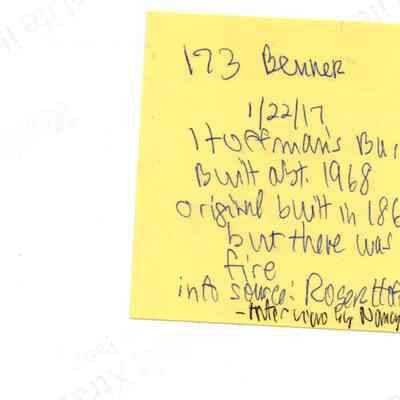 173 Benner
1/22/17
Hoffman's Bui
Built abt. 1968
original built in 186
but there was
fire
info source: Roger Hof
- Interview by Nancy